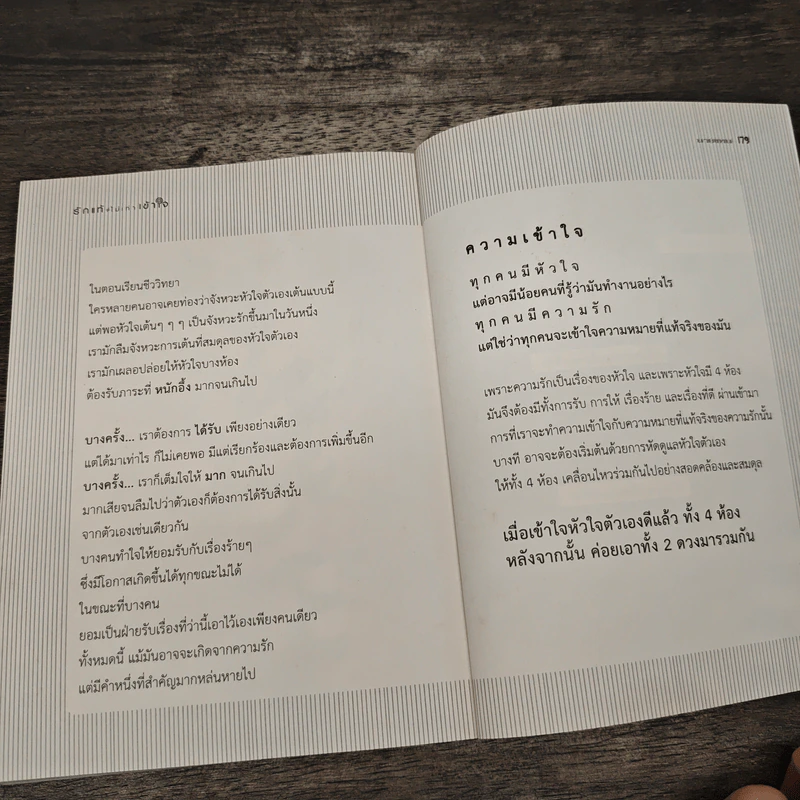 รักแท้ เข้าใจ
ในตอนเรียนชีววิทยา
ใครหลายคนอาจเคยท่องว่าจังหวะหัวใจตัวเองเต้นแบบนี้
แต่พอหัวใจเต้นๆ ๆ ๆ เป็นจังหวะรักขึ้นมาในวันหนึ่ง
เรามักลืมจังหวะการเต้นที่สมดุลของหัวใจตัวเอง
เรามักเผลอปล่อยให้หัวใจบางห้อง
ต้องรับภาระที่ หนักอึ้ง มากจนเกินไป
บางครั้ง... เราต้องการ ได้รับ เพียงอย่างเดียว
แต่ได้มาเท่าไร ก็ไม่เคยพอ มีแต่เรียกร้องและต้องการเพิ่มขึ้นอีก
บางครั้ง... เราก็เต็มใจให้ มาก จนเกินไป
มากเสียจนลืมไปว่าตัวเองก็ต้องการได้รับสิ่งนั้น
จากตัวเองเช่นเดียวกัน
บางคนทำใจให้ยอมรับกับเรื่องร้ายๆ
ซึ่งมีโอกาสเกิดขึ้นได้ทุกขณะไม่ได้
ในขณะที่บางคน
ยอมเป็นฝ่ายรับเรื่องที่ว่านี้เอาไว้เองเพียงคนเดียว
ทั้งหมดนี้ แม้มันอาจจะเกิดจากความรัก
แต่มีคำหนึ่งที่สำคัญมากหล่นหายไป
179
ความเข้าใจ
ทุกคนมีหัวใจ
แต่อาจมีน้อยคนที่รู้ว่ามันทำงานอย่างไร
ทุกคนมีความรัก
แต่ใช่ว่าทุกคนจะเข้าใจความหมายที่แท้จริงของมัน
เพราะความรักเป็นเรื่องของหัวใจ และเพราะหัวใจมี 4 ห้อง
มันจึงต้องมีทั้งการรับ การให้ เรื่องร้าย และเรื่องที่ดี ผ่านเข้ามา
การที่เราจะทำความเข้าใจกับความหมายที่แท้จริงของความรักนั้น
บางที อาจจะต้องเริ่มต้นด้วยการหัดดูแลหัวใจตัวเอง
ให้ทั้ง 4 ห้อง เคลื่อนไหวร่วมกันไปอย่างสอดคล้องและสมดุล
เมื่อเข้าใจหัวใจตัวเองดีแล้ว ทั้ง 4 ห้อง
หลังจากนั้น ค่อยเอาทั้ง 2 ดวงมารวมกัน